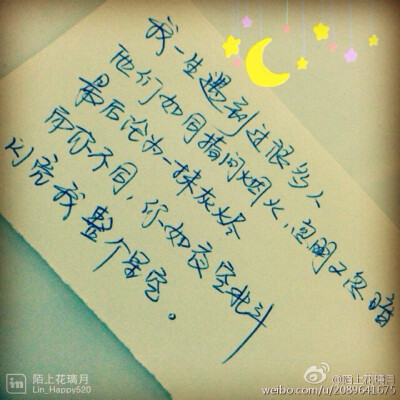 我一生遇到过很多人
他们如同指间烟火，忽明又忽暗
最后沦为一抹灰烬
而你不同，你如夜空北斗
闪亮我整个星空。
in 陌上花璃月
Lin_Happy520
@陌上花璃月
weibo.com/u/2089641675